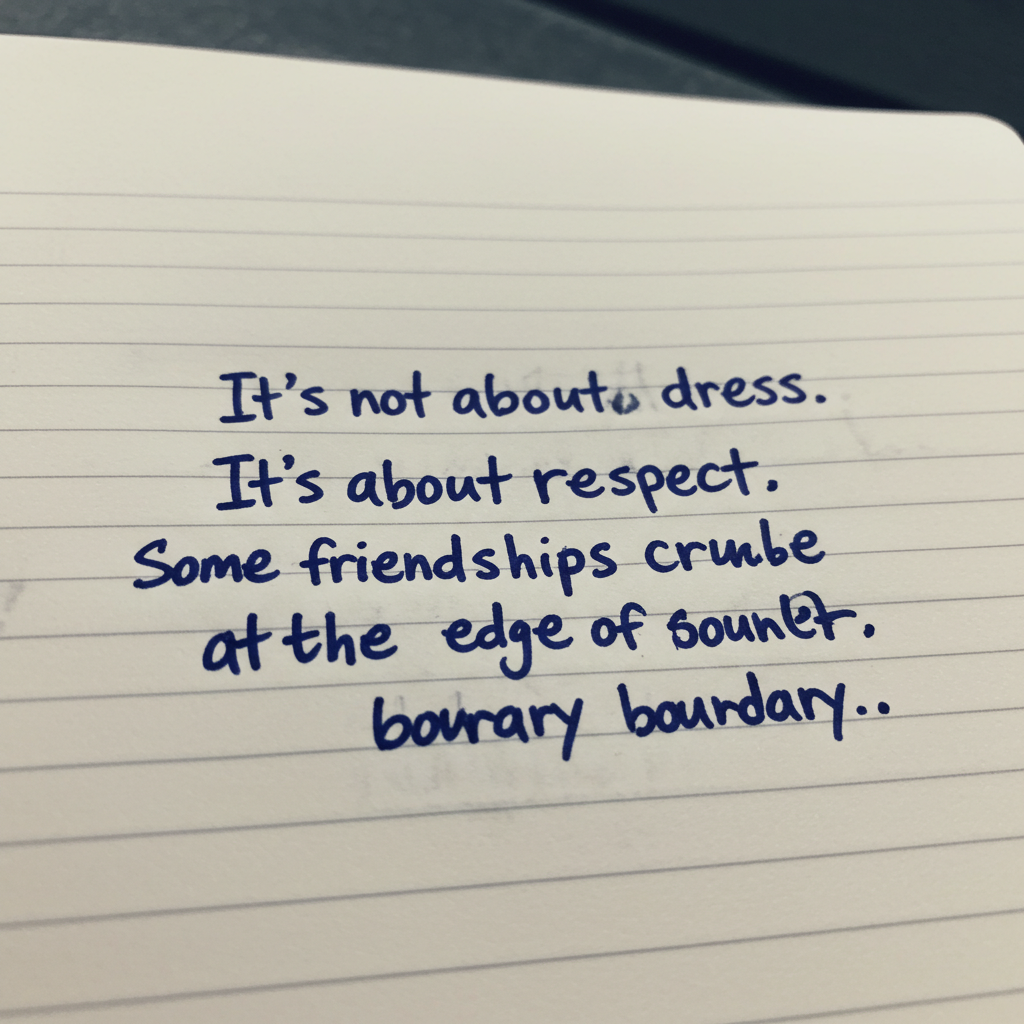 It's not about dress.
It's about respect.
Some friendships crumbe
at the edge of
bourary bourdary..